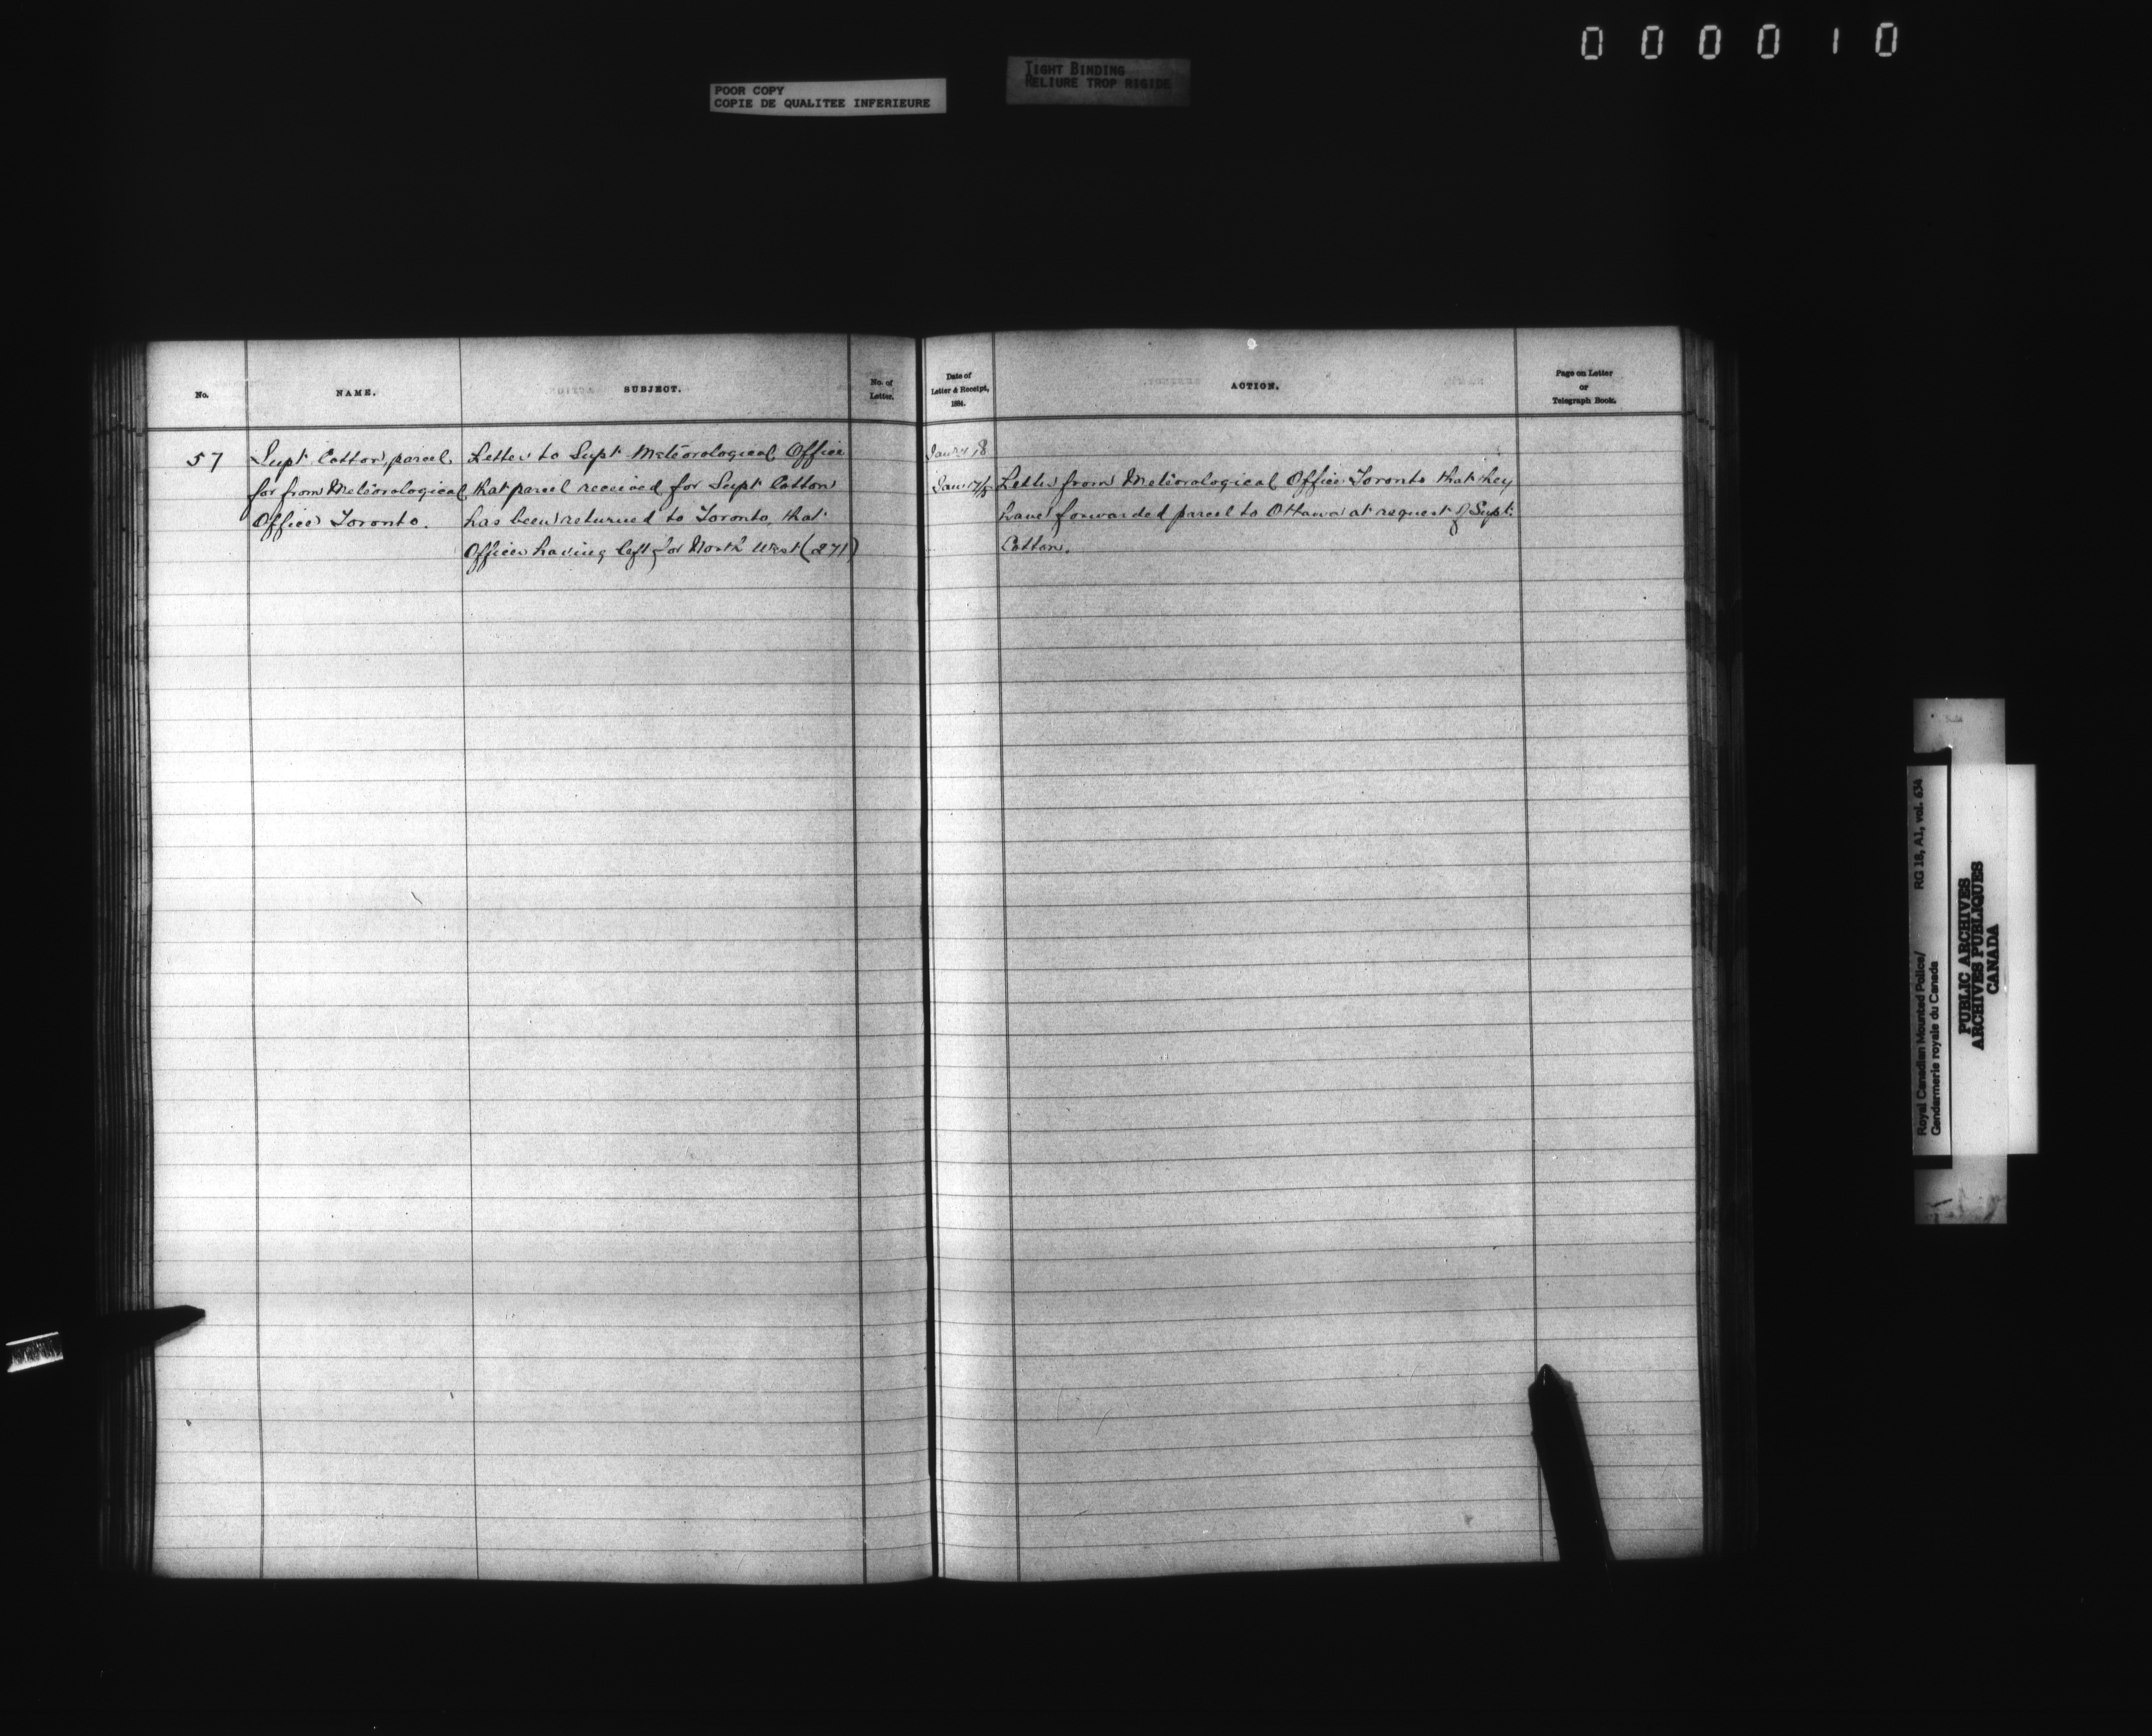 0 0 0 0 1 0
POOR COPY
COPIE DE QUALITEE INFERIEURE
TIGHT BINDING
RELIURE TROP RIGIDE
No.
NAME.
SUBJECT.
No. of
Letter.
Date of
Letter & Receipt,
1884.
ACTION.
Page on Letter
or
Telegraph Book.
57
Supt Cotton, parcel
for from Meteorological
Office Toronto.
Letter to Supt Meteorological Office
that parcel received for Supt Cotton
has been returned to Toronto, that
Officer having left for North West (271)
Letter from Meteorological Office Toronto that they
have forwarded parcel to Ottawa at request of Supt
Cotton.
Royal Canadian Mounted Police/ RG 18, A1, vol. 634
Gendarmerie royale du Canada
PUBLIC ARCHIVES
ARCHIVES PUBLIQUES
CANADA